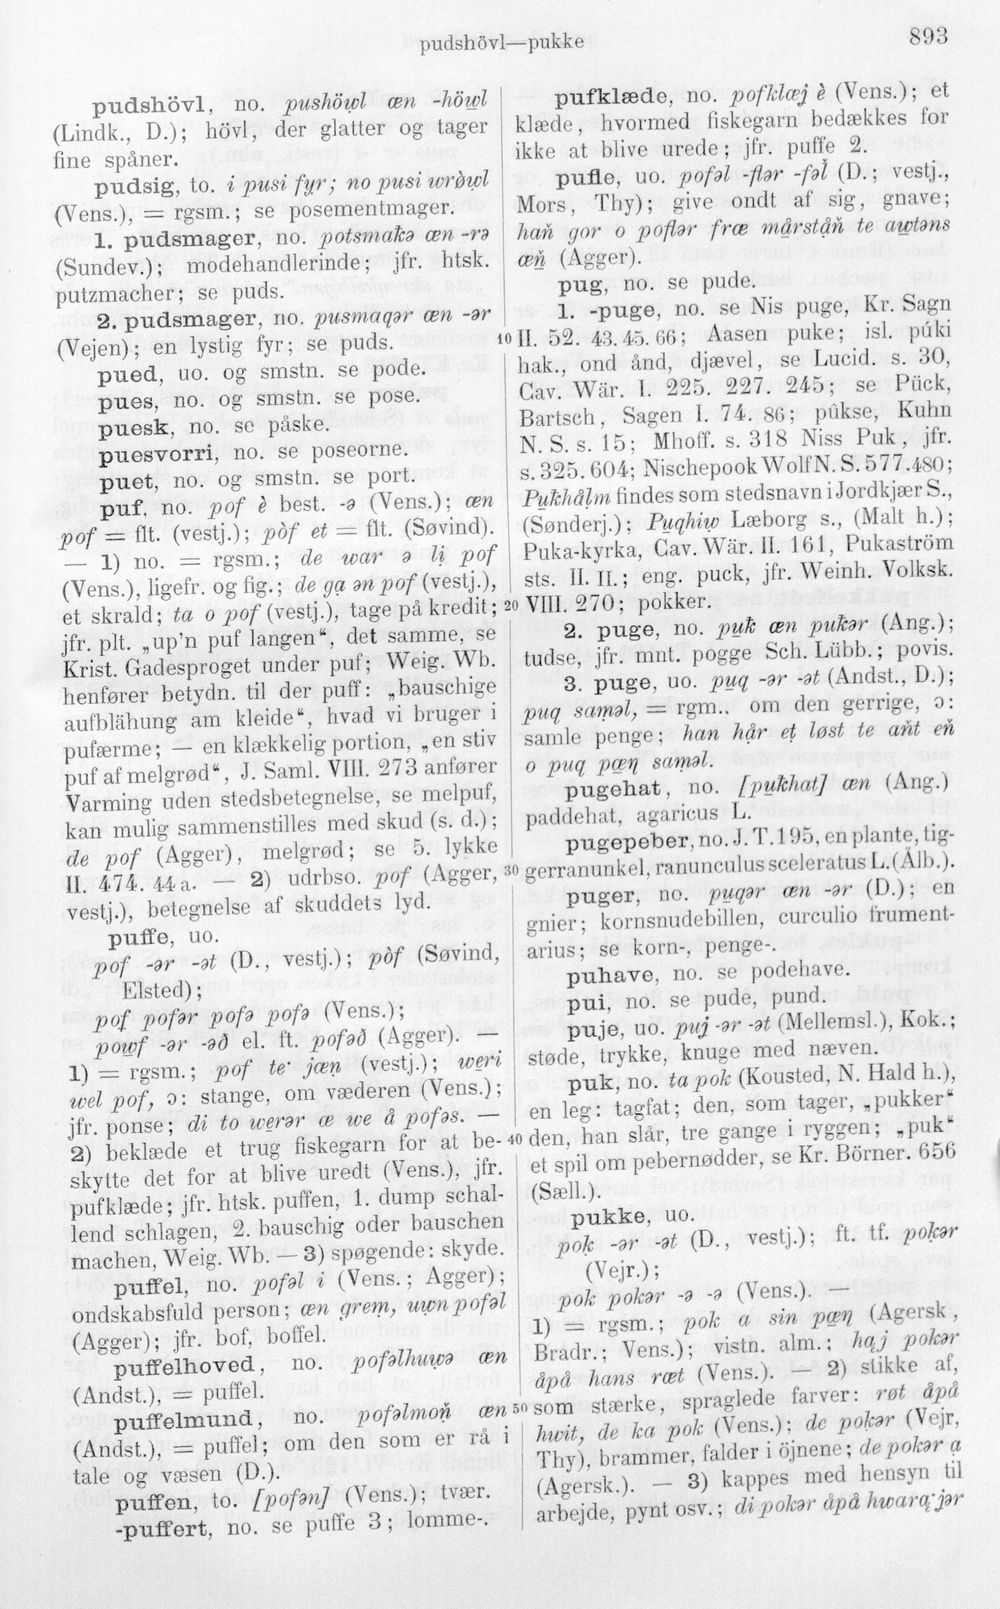 pudshövl—pukke
893
pudshövl, no. pushöwl æn -höwl
(Lindk., D.); hövl, der glatter og tager
fine spåner.
pudsig, to. i pusi fyr; no pusi wròwl
(Vens.), = rgsm.; se posementmager.
1. pudsmager, no. potsmakə æn -rə
(Sundev.); modehandlerinde; jfr. htsk.
putzmacher; se puds.
2. pudsmager, no. pusmaqər æn -ər
(Vejen); en lystig fyr; se puds.
pued, uo. og smstn. se pode.
pues, no. og smstn. se pose.
puesk, no. se påske.
puesvorri, no. se poseorne.
puet, no. og smstn. se port.
puf, no. pof è best. -ə (Vens.); æn
pof = flt. (vestj.); pòf et = flt. (Søvind).
— 1) no. = rgsm.; de war ə li pof
(Vens.), ligefr. og fig.; de ga ən pof (vestj.),
et skrald; ta o pof (vestj.), tage på kredit;
jfr. plt. „up’n puf langen“, det samme, se
Krist. Gadesproget under puf; Weig. Wb.
henfører betydn. til der puff: „bauschige
aufblähung am kleide“, hvad vi bruger i
pufærme; — en klækkelig portion, „en stiv
puf af melgrød“, J. Saml. VIII. 273 anfører
Varming uden stedsbetegnelse, se melpuf,
kan mulig sammenstilles med skud (s. d.);
de pof (Agger), melgrød; se 5. lykke
II. 474. 44 a. — 2) udrbso. pof (Agger,
vestj.), betegnelse af skuddets lyd.
puffe, uo.
pof -ər -ət (D., vestj.); pòf (Søvind,
Elsted);
pof pofər pofə pofə (Vens.);
powf -ər -əð el. ft. pofəð (Agger). —
1) = rgsm.; pof te· jæn (vestj.); weri
wel pof, ɔ: stange, om væderen (Vens.);
jfr. ponse; di to werər æ we å pofəs. —
2) beklæde et trug fiskegarn for at be-
skytte det for at blive uredt (Vens.), jfr.
pufklæde; jfr. htsk. puffen, 1. dump schal-
lend schlagen, 2. bauschig oder bauschen
machen, Weig. Wb. — 3) spøgende: skyde.
puffel, no. pofəl i (Vens.; Agger);
ondskabsfuld person; æn grem, uwn pofəl
(Agger); jfr. bof, boffel.
puffelhoved, no. pofəlhuwə æn
(Andst.), = puffel.
puffelmund, no. pofəlmoñ æn
(Andst.), = puffel; om den som er rå i
tale og væsen (D.).
puffen, to. [pofən] (Vens.); tvær.
-puffert, no. se puffe 3; lomme-.
pufklæde, no. pofklæj è (Vens.); et
klæde, hvormed fiskegarn bedækkes for
ikke at blive urede; jfr. puffe 2.
pufle, uo. pofəl -flər -fəl (D.; vestj.,
Mors, Thy); give ondt af sig, gnave;
hañ gor o poflər fræ mårståñ te awtəns
æñ (Agger).
pug, no. se pude.
1. -puge, no. se Nis puge, Kr. Sagn
10 II. 52. 43. 45. 66; Aasen puke; isl. púki
hak., ond ånd, djævel, se Lucid. s. 30,
Cav. Wär. I. 225. 227. 245; se Pück,
Bartsch, Sagen I. 74. 86; pûkse, Kuhn
N. S. s. 15; Mhoff. s. 318 Niss Puk, jfr.
s. 325. 604; Nischepook Wolf N. S. 577. 480;
Pukhålm findes som stedsnavn i Jordkjær S.,
(Sønderj.); Puqhiw Læborg s., (Malt h.);
Puka-kyrka, Cav. Wär. II. 161, Pukaström
sts. II. II.; eng. puck, jfr. Weinh. Volksk.
20 VIII. 270; pokker.
2. puge, no. puk æn pukər (Ang.);
tudse, jfr. mnt. pogge Sch. Lübb.; povis.
3. puge, uo. puq -ər -ət (Andst., D.);
puq saməl, = rgm., om den gerrige, ɔ:
samle penge; han hår et løst te añt eñ
o puq pæŋ saməl.
pugehat, no. [pukhat] æn (Ang.)
paddehat, agaricus L.
pugepeber, no. J. T. 195, en plante, tig-
30 gerranunkel, ranunculus sceleratus L. (Ålb.).
puger, no. puqər æn -ər (D.); en
gnier; kornsnudebillen, curculio frument-
arius; se korn-, penge-.
puhave, no. se podehave.
pui, no. se pude, pund.
puje, uo. puj -ər -ət (Mellemsl.), Kok.;
støde, trykke, knuge med næven.
puk, no. ta pok (Kousted, N. Hald h.),
en leg: tagfat; den, som tager, „pukker“
40 den, han slår, tre gange i ryggen; „puk“
et spil om pebernødder, se Kr. Börner. 656
(Sæll.).
pukke, uo.
pok -ər -ət (D., vestj.); ft. tf. pokər
(Vejr.);
pok pokər -ə -ə (Vens.). —
1) = rgsm.; pok a sin pæŋ (Agersk,
Bradr.; Vens.); vistn. alm.; haj pokər
åpå hans ræt (Vens.). — 2) stikke af,
50 som stærke, spraglede farver: røt åpå
hwit, de ka pok (Vens.); de pokər (Vejr,
Thy), brammer, falder i öjnene; de pokər a
(Agersk.). — 3) kappes med hensyn til
arbejde, pynt osv.; di pokər åpå hwara·jər